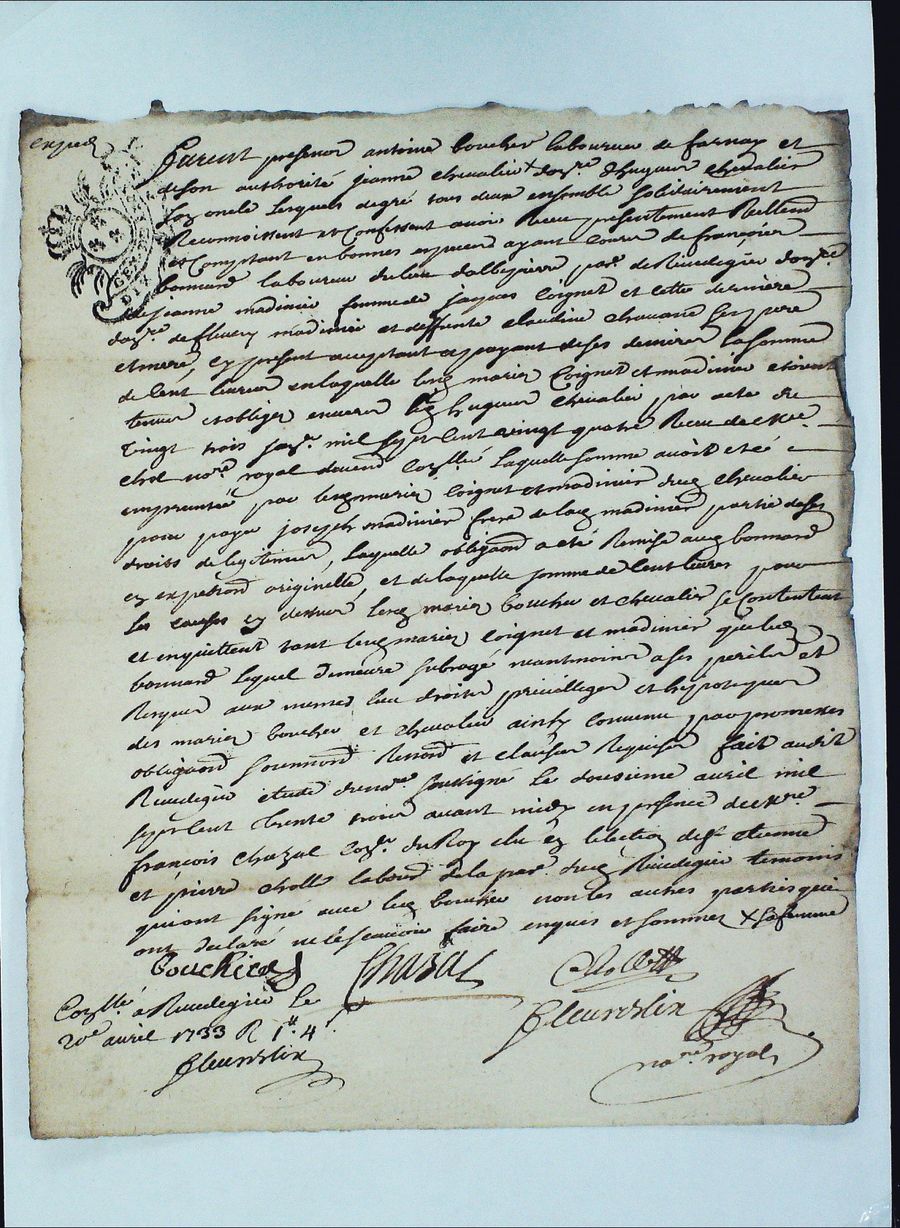 expedié
furent presents antoine boucher laboureur de farnay et
de son authorité jeanne chevalier + donre d'hugues chevalier
son oncle lesquels de gré tous deux ensemble solitairement
Reconnoissent et Confessent avoir Receu presentement Reellemt
et Comptant en bonnes especes ayant Cours de françois
bonnard laboureur du lieu dalles pare de Rivedegier donre
de jeanne madinier femme de jaques Coignet et cette derniere
donre de fleury madinier et deffunte claudine chavanne ses pere
et mere, cy present acceptant et payant de ses deniers la somme
de Cent livres en laquelle lesd mariez Coignet et madinier etoient
tenus et obligez envers led hugues chevalier par acte du
vingt trois janr mil sept Cent vingt quatre Receu de Me
chol nore royal Conllé laquelle somme avoit eté
empruntée par lesd mariez Coignet et madinier dud chevalier
pour payer joseph madinier frere de lad madinier partie de ses
droits de legitimes, laquelle obligaond a eté Remise aud bonnard
en expeond originelle, et de laquelle somme de Cent livres pour
les causes cy dessus lesd mariez boucher et chevalier se Contentent
et enquittent tant lesd mariez Coignet et madinier que led
bonnard lequel demeure subrogé neantmoins a ses perils et
Risques aux mesmes lieu droits privilleges et hypoteques
des mariez boucher et chevalier ainsy Convenu par promesses
obligaond soumond Renond et clauses Requises fait audit
Rivedegier etude du nore soussigné le dousieme avril mil
sept Cent trente trois avant midy en presence de Me
françois Chazal Conr du Roy elu en l'election de st etienne
et pierre choll labourd de la pare dud Rivedegier temoins
qui ont signé avec led boucher non les autres parties qui
ont declaré ne le sçavoir faire enquis et sommez + sa femme
Bouchier Chazal Choll
Conllé a Rivedegier Le
20e avril 1733 R 1lt 4s
fleurdelix
fleurdelix
nore royal
GEN DE